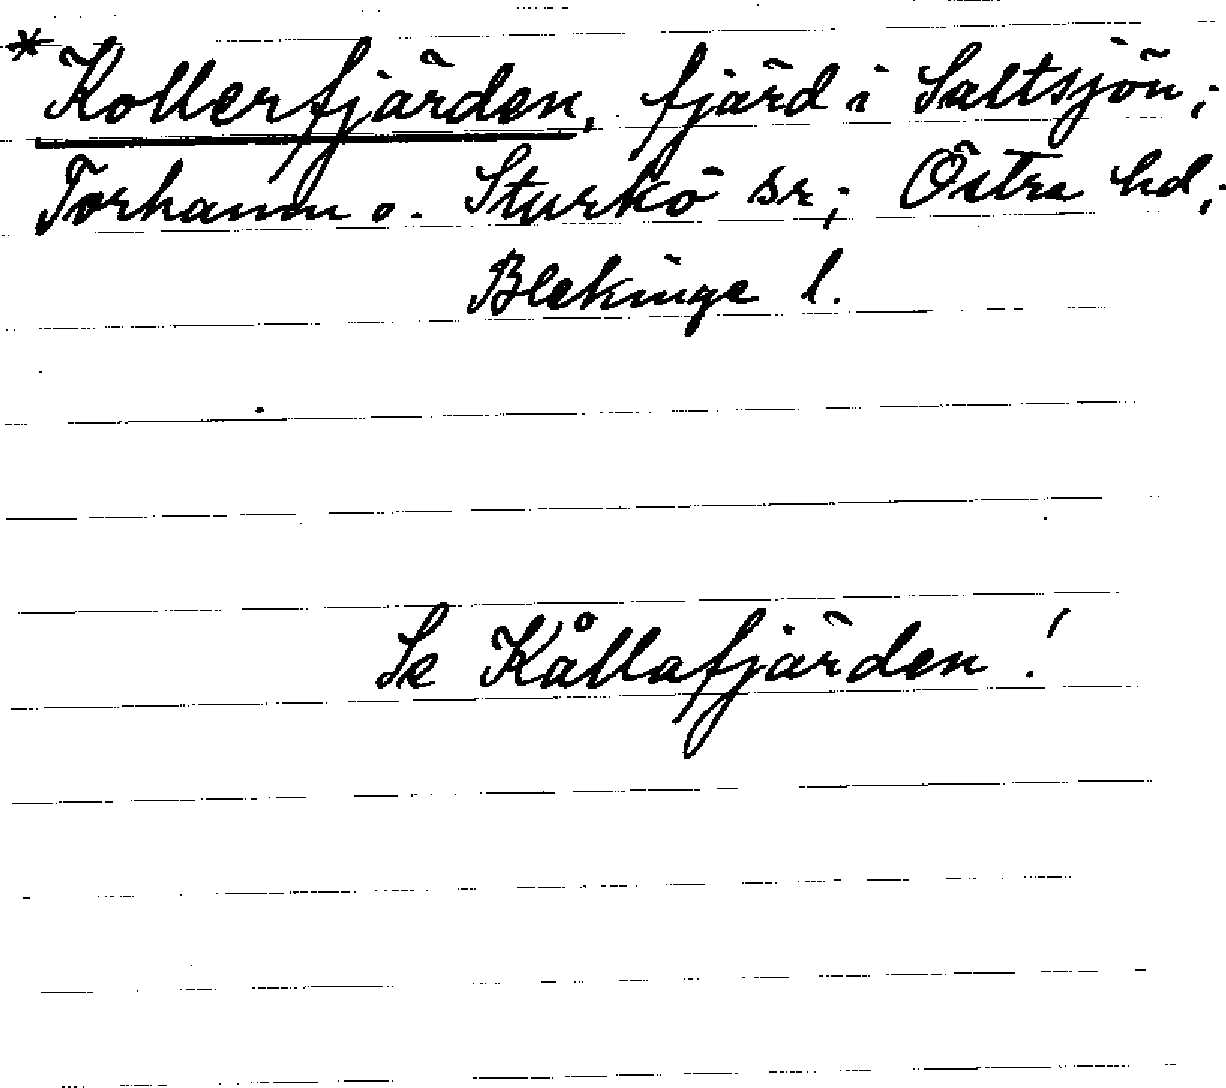 *Kollerfjärden, fjärd i Saltsjön;
Torhamn o. Sturkö sr; Östra hd;
Blekinge l.
Se Kållafjärden!